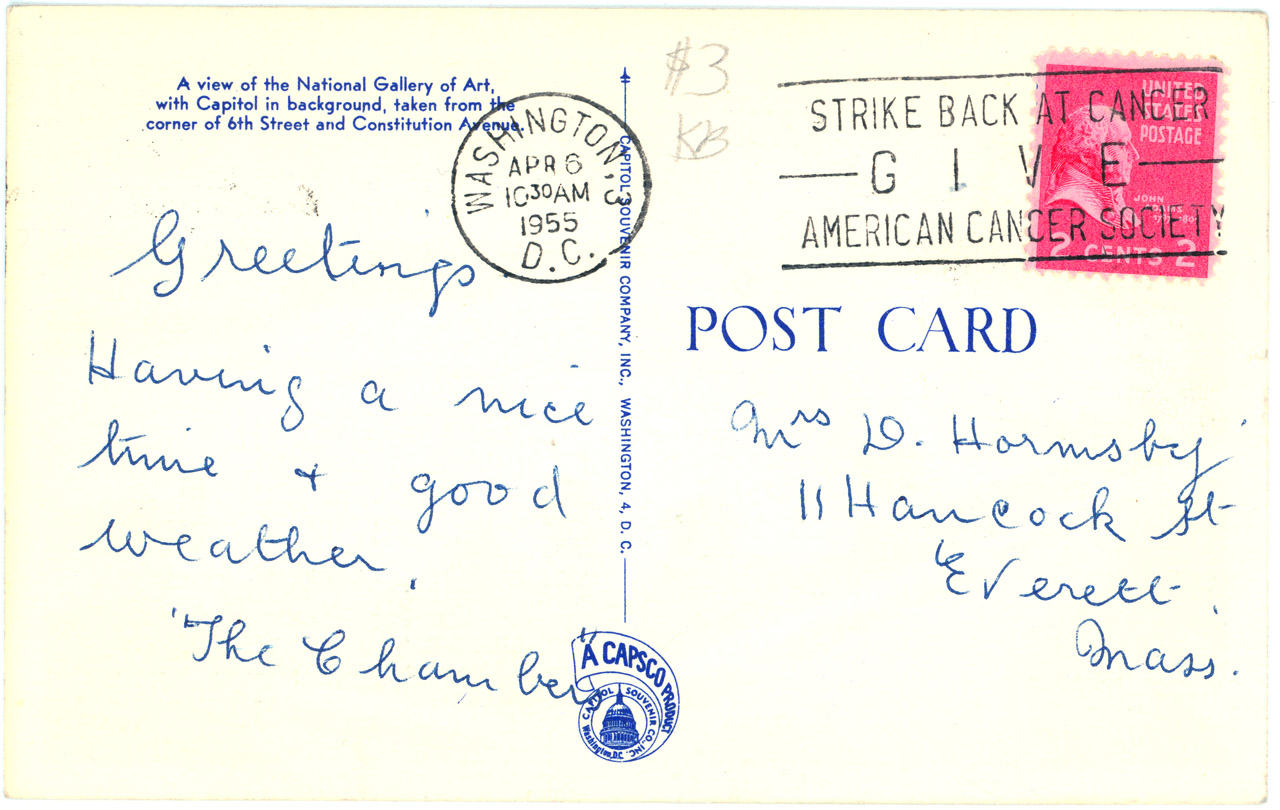 A view of the National Gallery of Art,
with Capitol in background, taken from the
corner of 6th Street and Constitution Avenue.
WASHINGTON, 3
APR 6
10 30 AM
1955
D.C.
$3
KB
STRIKE BACK AT CANCER
G I V E
AMERICAN CANCER SOCIETY
UNITED
STATES
POSTAGE
JOHN
ADAMS
2 CENTS 2
POST CARD
Greetings
Having a nice
time + good
weather.
"The Chambers"
CAPITOL SOUVENIR COMPANY, INC., WASHINGTON, 4, D. C.
Mrs D. Hormsby
11 Hancock St
Everett.
Mass.
A CAPSCO PRODUCT
CAPITOL SOUVENIR CO., INC.
Washington, D.C.